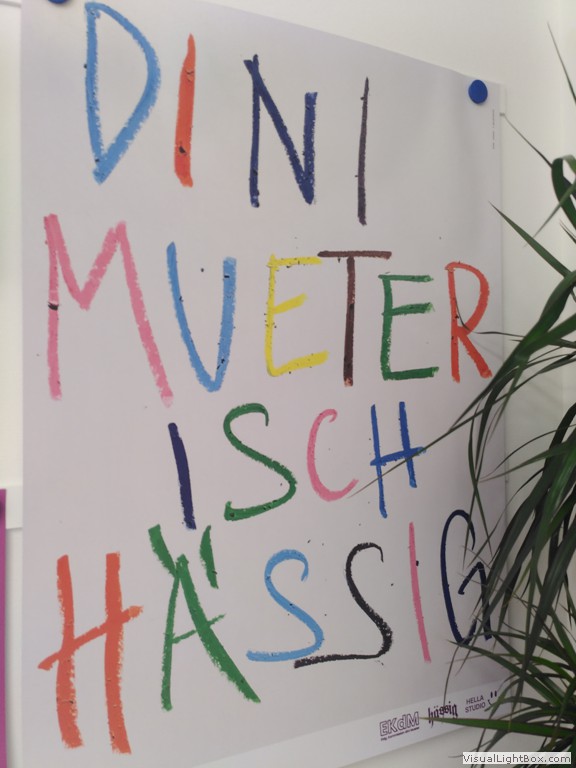 DINI
MUETER
ISCH
HÄSSIG
EKdM
hässig
HELLA
STUDIO
VisualLightBox.com